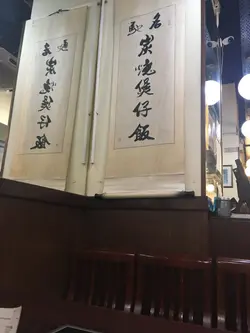 馳名
炭燒煲仔飯
馳名
炭燒煲仔飯